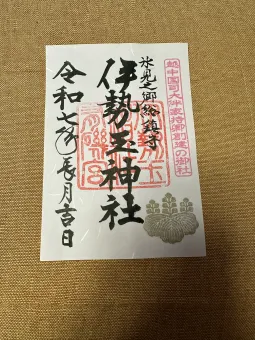 越中国司大伴家持卿創建の御社
氷見之郷総鎮守
伊勢玉神社
令和七年辰月吉日